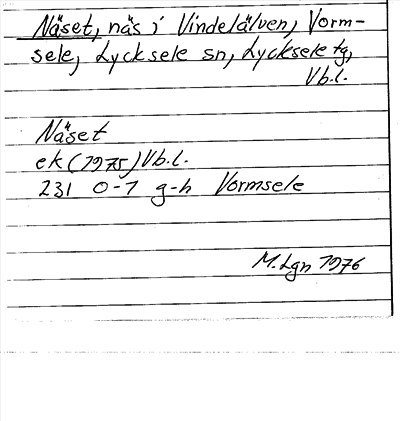 Näset, näs i Vindelälven, Vorm-
sele, Lycksele sn, Lycksele tg,
Vb.l.
Näset
ek (1975) Vb.l.
231 0-1 g-h Vormsele
M.Lgn 1976